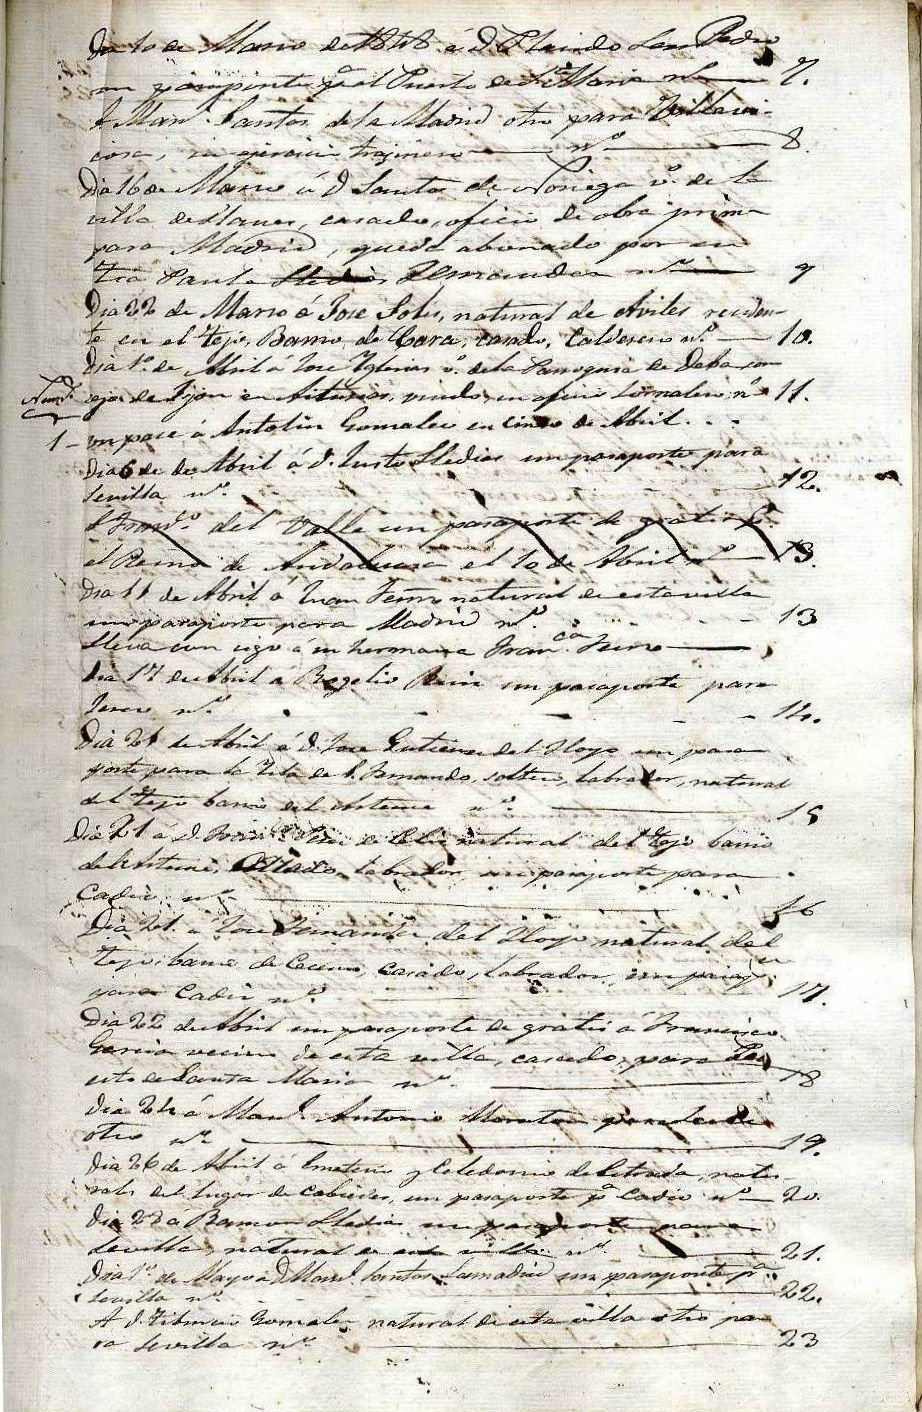 Dia 10 de Marzo de 1818 á D. Placido San Pedro
un pasaporte pª el Puerto de Sª Maria nº 7.
A Manl. Santos de la Madrid otro para Villavi-
ciosa, su ejercicio trajinero nº 8.
Dia 16 de Marzo á D Santos de Noriega vº. de la
villa de Llanes, casado, oficio de obra prima
para Madrid, queda abonado por su
tia Paula Fernandez nº 9
Dia 22 de Marzo á Jose Solis, natural de Aviles residen-
te en el Tejo, Barrio de Cara, casado, Calderero nº. 10.
Dia 1º. de Abril á Jose Yglesias vº. de la Parroquia de Deba con
cejo de Gijon en Asturias, viudo, su oficio Jornalero nº 11.
1 - un pase á Antolin Gonzalez en cinco de Abril.
Dia 6 de de Abril á D. Justo Lledias un pasaporte para
Sevilla nº. 12.
A Franco. del Valle un pasaporte de gratis pª
el Reino de Andalucia el 10 de Abril nº 13.
Dia 11 de Abril á Juan natural de esta villa
un pasaporte para Madrid nº. 13
lleva con sigo á su hermana Franca.
Dia 17 de Abril á Rogelio Ruiz un pasaporte para
Jerez nº. 14.
Dia 21 de Abril á D. Jose Gutierrez del Hoyo un pasa
porte para la Isla de S. Fernando, soltero, labrador, natural
del Tejo barrio del nº. 15
Dia 21 á D. natural del Tejo barrio
labrador un pasaporte para
Cadiz nº 16
Dia 21. á Jose Fernandez del Hoyo natural del
Tejo barrio de casado, labrador, un pasapte
para Cadiz nº 17.
Dia 22 de Abril un pasaporte de gratis á Francisco
Garcia vecino de esta villa, casado, para Pu
erto de Santa Maria nº. 18
Dia 24 á Manl. Antonio
otro nº 19.
Dia 26 de Abril á Emeterio y Celedonio de Estrada, natu
rales del lugar de Cabiedes, un pasaporte pª Cadiz nº 20.
Dia 27 á Ramon Lledias un pasaporte para
Sevilla, natural de esta villa nº. 21.
Dia 1º. de Mayo á D Manl. Santos Lamadrid un pasaporte pª
Sevilla nº. 22.
A D. Tiburcio Gonzalez natural de esta villa otro pa
ra Sevilla nº. 23